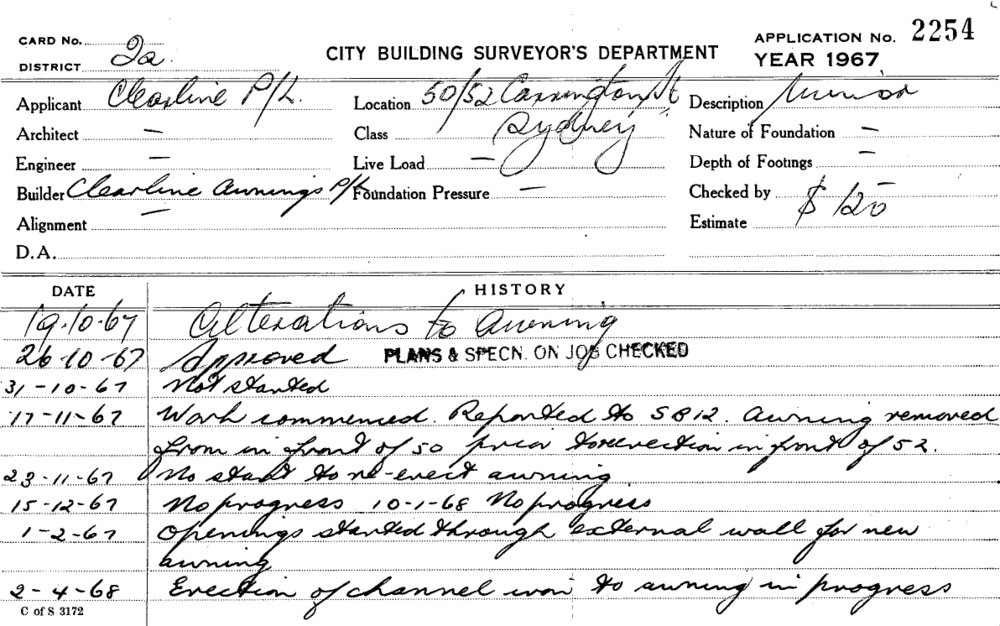 CARD No.
DISTRICT 2a.
CITY BUILDING SURVEYOR'S DEPARTMENT
APPLICATION No. 2254
YEAR 1967
Applicant Clearline P/L.
Location 50/52 Carrington St
Sydney
Description Minor
Architect —
Class
Nature of Foundation —
Engineer —
Live Load —
Depth of Footings —
Builder Clearline Awnings P/L
Foundation Pressure —
Checked by —
Alignment —
Estimate $120
D.A.
DATE HISTORY
19-10-67 Alterations to Awning
26-10-67 Approved PLANS & SPECN. ON JOB CHECKED
31-10-67 Not started
17-11-67 Work commenced. Reported to SB12. Awning removed
from in front of 50 prior to erection in front of 52.
23-11-67 No start to re-erect awning
15-12-67 No progress 10-1-68 No progress
1-2-67 Openings started through external wall for new
awning
2-4-68 Erection of channel iron to awning in progress
C of S 3172